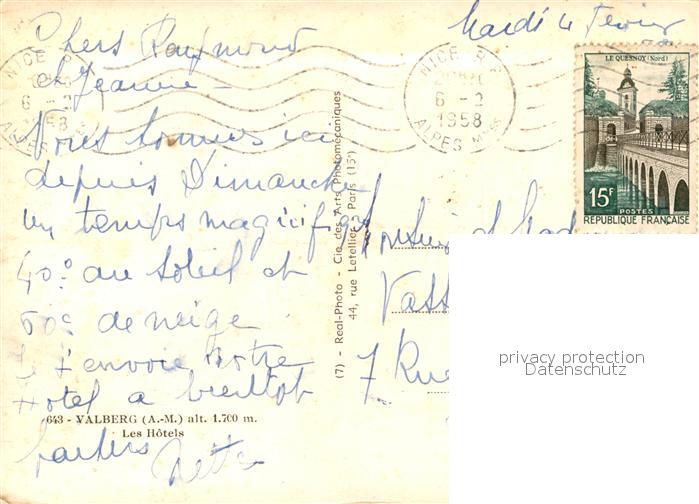 Mardi 4 Février
Chers Raymond
et Jeanne -
Nous sommes ici
depuis Dimanche
un temps magnifique
40° au soleil et
60c de neige
je t'envoie notre
Hotel a bientôt
643 - VALBERG (A.-M.) alt. 1.700 m.
Les Hôtels
NICE R.P.
6 - 2
1958
ALPES MMES
NICE R.P.
6 - 2
1958
ALPES
LE QUESNOY (Nord)
15F
POSTES
REPUBLIQUE FRANÇAISE
(7) - Real-Photo - Cie des Arts Photomécaniques
44, rue Letellier - Paris (15e)
Monsieur et Mad
Vass
7 Rue
privacy protection
Datenschutz